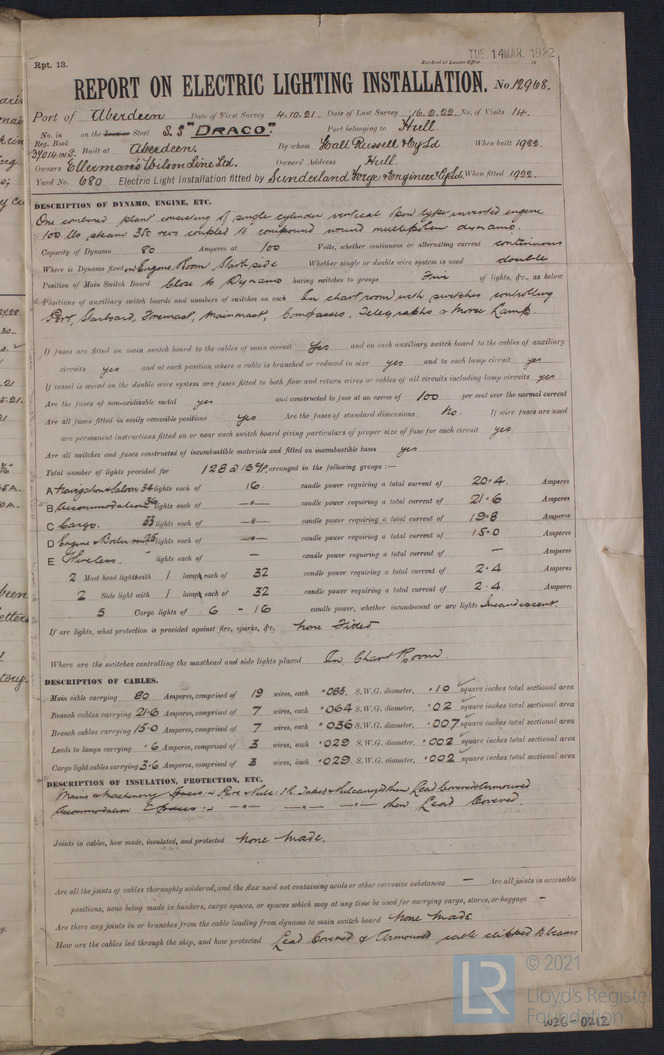 TUE. 14 MAR. 1922
Rpt. 13.
Received at London Office
REPORT ON ELECTRIC LIGHTING INSTALLATION. No. 12968.
Port of Aberdeen Date of First Survey 4.10.21. Date of Last Survey 16.2.22 No. of Visits 14.
No. in on the Steel S.S "DRACO". Port belonging to Hull
Reg. Book
Built at Aberdeen. By whom Hall Russell & Co Ld When built 1922.
Owners Ellerman's Wilson Line Ltd. Owners' Address Hull.
Yard No. 680 Electric Light Installation fitted by Sunderland Forge & Engineer Co Ltd. When fitted 1922.
DESCRIPTION OF DYNAMO, ENGINE, ETC.
One combined plant consisting of single cylinder vertical open type inverted engine
100 lbs steam 350 revs coupled to compound wound multipolar dynamo.
Capacity of Dynamo 80 Amperes at 100 Volts, whether continuous or alternating current continuous
Where is Dynamo fixed in Engine Room, Starb side Whether single or double wire system is used double
Position of Main Switch Board Close to Dynamo having switches to groups Five of lights, &c., as below
Positions of auxiliary switch boards and numbers of switches on each In chart room with switches controlling
Port, Starboard, Foremast, Mainmast, Compasses, Telegraphs & Morse Lamp.
If fuses are fitted on main switch board to the cables of main circuit Yes and on each auxiliary switch board to the cables of auxiliary
circuits yes and at each position where a cable is branched or reduced in size yes and to each lamp circuit yes
If vessel is wired on the double wire system are fuses fitted to both flow and return wires or cables of all circuits including lamp circuits yes
Are the fuses of non-oxidizable metal yes and constructed to fuse at an excess of 100 per cent over the normal current
Are all fuses fitted in easily accessible positions yes Are the fuses of standard dimensions No. If wire fuses are used
are permanent instructions fitted on or near each switch board giving particulars of proper size of fuse for each circuit yes
Are all switches and fuses constructed of incombustible materials and fitted on incombustible bases yes
Total number of lights provided for 128 @ 16 c.p. arranged in the following groups :—
A Navigation & Saloon 34 lights each of 16. candle power requiring a total current of 20.4. Amperes
B Accommodation 36 lights each of —"— candle power requiring a total current of 21.6 Amperes
C Cargo. 33 lights each of —"— candle power requiring a total current of 19.8 Amperes
D Engine & Boiler rooms 25 lights each of —"— candle power requiring a total current of 15.0 Amperes
E Wireless. " lights each of — candle power requiring a total current of — Amperes
2 Mast head lights with 1 lamps each of 32 candle power requiring a total current of 2.4 Amperes
2 Side light with 1 lamps each of 32 candle power requiring a total current of 2.4. Amperes
5 Cargo lights of 6 - 16 candle power, whether incandescent or arc lights Incandescent.
If arc lights, what protection is provided against fire, sparks, &c. None Fitted
Where are the switches controlling the masthead and side lights placed In Chart Room.
DESCRIPTION OF CABLES.
Main cable carrying 80 Amperes, comprised of 19 wires, each .083. S.W.G. diameter, .10 square inches total sectional area
Branch cables carrying 21.6 Amperes, comprised of 7 wires, each .064 S.W.G. diameter, .02 square inches total sectional area
Branch cables carrying 15.0 Amperes, comprised of 7 wires, each .036 S.W.G. diameter, .007 square inches total sectional area
Leads to lamps carrying .6 Amperes, comprised of 3 wires, each .029 S.W.G. diameter, .002 square inches total sectional area
Cargo light cables carrying 3.6 Amperes, comprised of 3 wires, each .029 S.W.G. diameter, .002 square inches total sectional area
DESCRIPTION OF INSULATION, PROTECTION, ETC.
Mains & Machinery Spaces :- Pure & Vulc: I.R. Taped & Vulcanized then Lead Covered & Armoured
Accommodation Spaces :- —"— —"— —"— then Lead Covered.
Joints in cables, how made, insulated, and protected None Made.
Are all the joints of cables thoroughly soldered, and the flux used not containing acids or other corrosive substances — Are all joints in accessible
positions, none being made in bunkers, cargo spaces, or spaces which may at any time be used for carrying cargo, stores, or baggage —
Are there any joints in or branches from the cable leading from dynamo to main switch board None Made
How are the cables led through the ship, and how protected Lead Covered & Armoured cable clipped to beams
LR © 2021
Lloyd's Register
Foundation
W26-0212